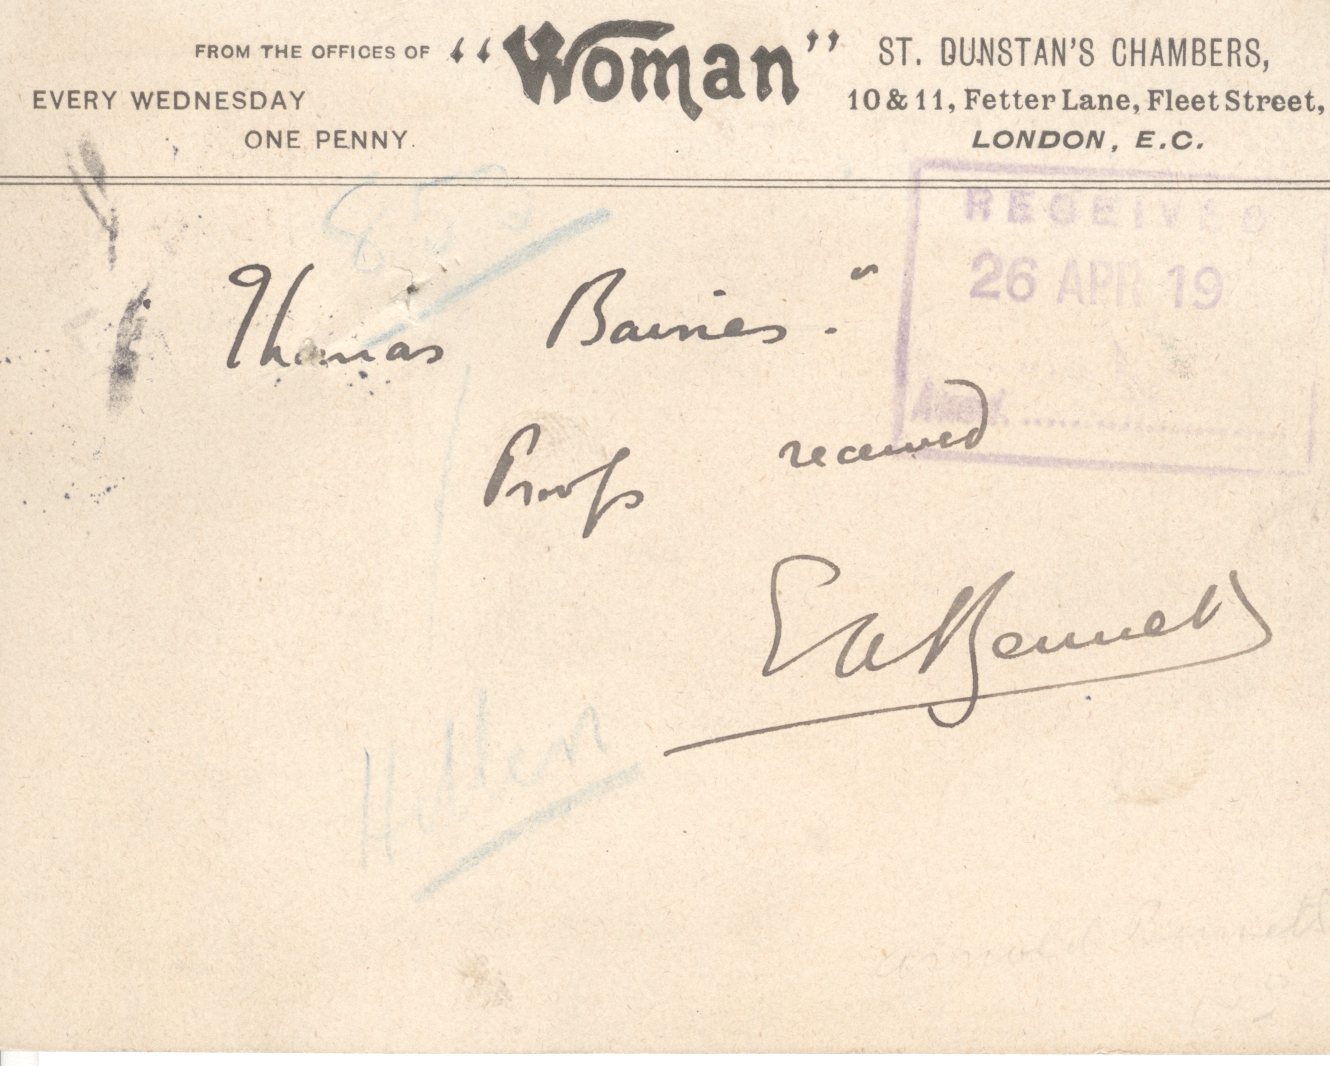 FROM THE OFFICES OF "Woman" ST. DUNSTAN'S CHAMBERS,
EVERY WEDNESDAY 10 & 11, Fetter Lane, Fleet Street,
ONE PENNY. LONDON, E.C.
RECEIVED
26 APR 19
Thomas Baines."
Proofs received
E A Bennett
Arnold Bennett